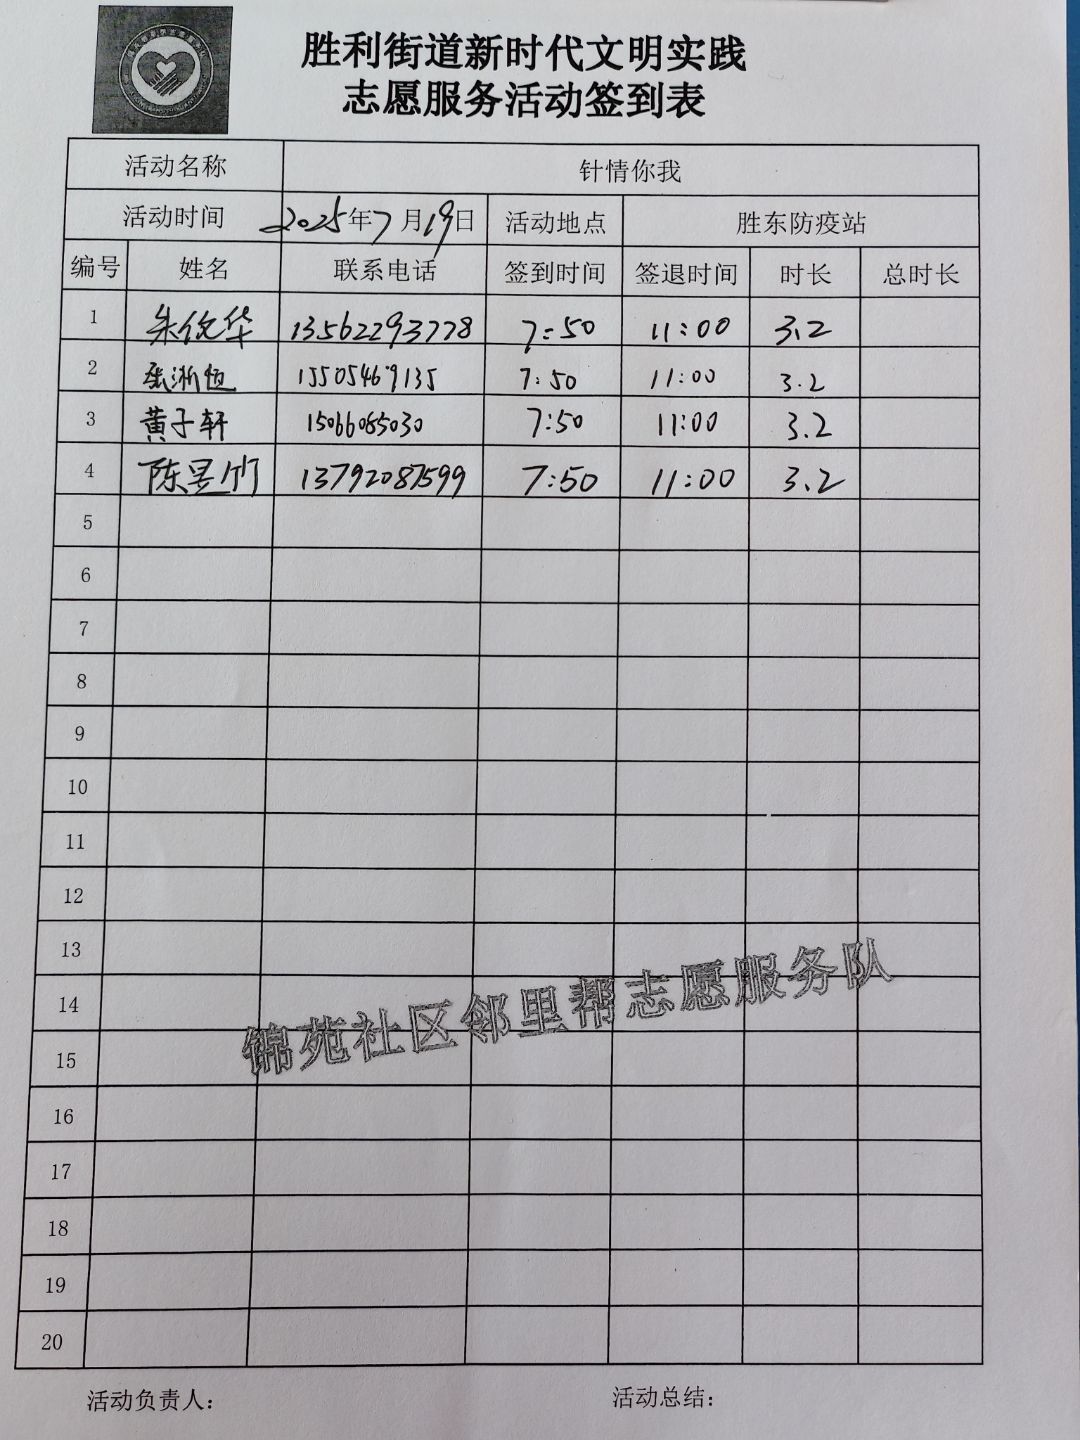 胜利街道新时代文明实践
志愿服务活动签到表
活动名称 针情你我
活动时间 2025年7月19日 活动地点 胜东防疫站
编号 姓名 联系电话 签到时间 签退时间 时长 总时长
1 朱俊华 13562293778 7:50 11:00 3.2
2 张淅恒 15505469135 7:50 11:00 3.2
3 黄子轩 15066085030 7:50 11:00 3.2
4 陈昱竹 13792087599 7:50 11:00 3.2
5
6
7
8
9
10
11
12
13
14
15
16
17
18
19
20
锦苑社区邻里帮志愿服务队
活动负责人： 活动总结：